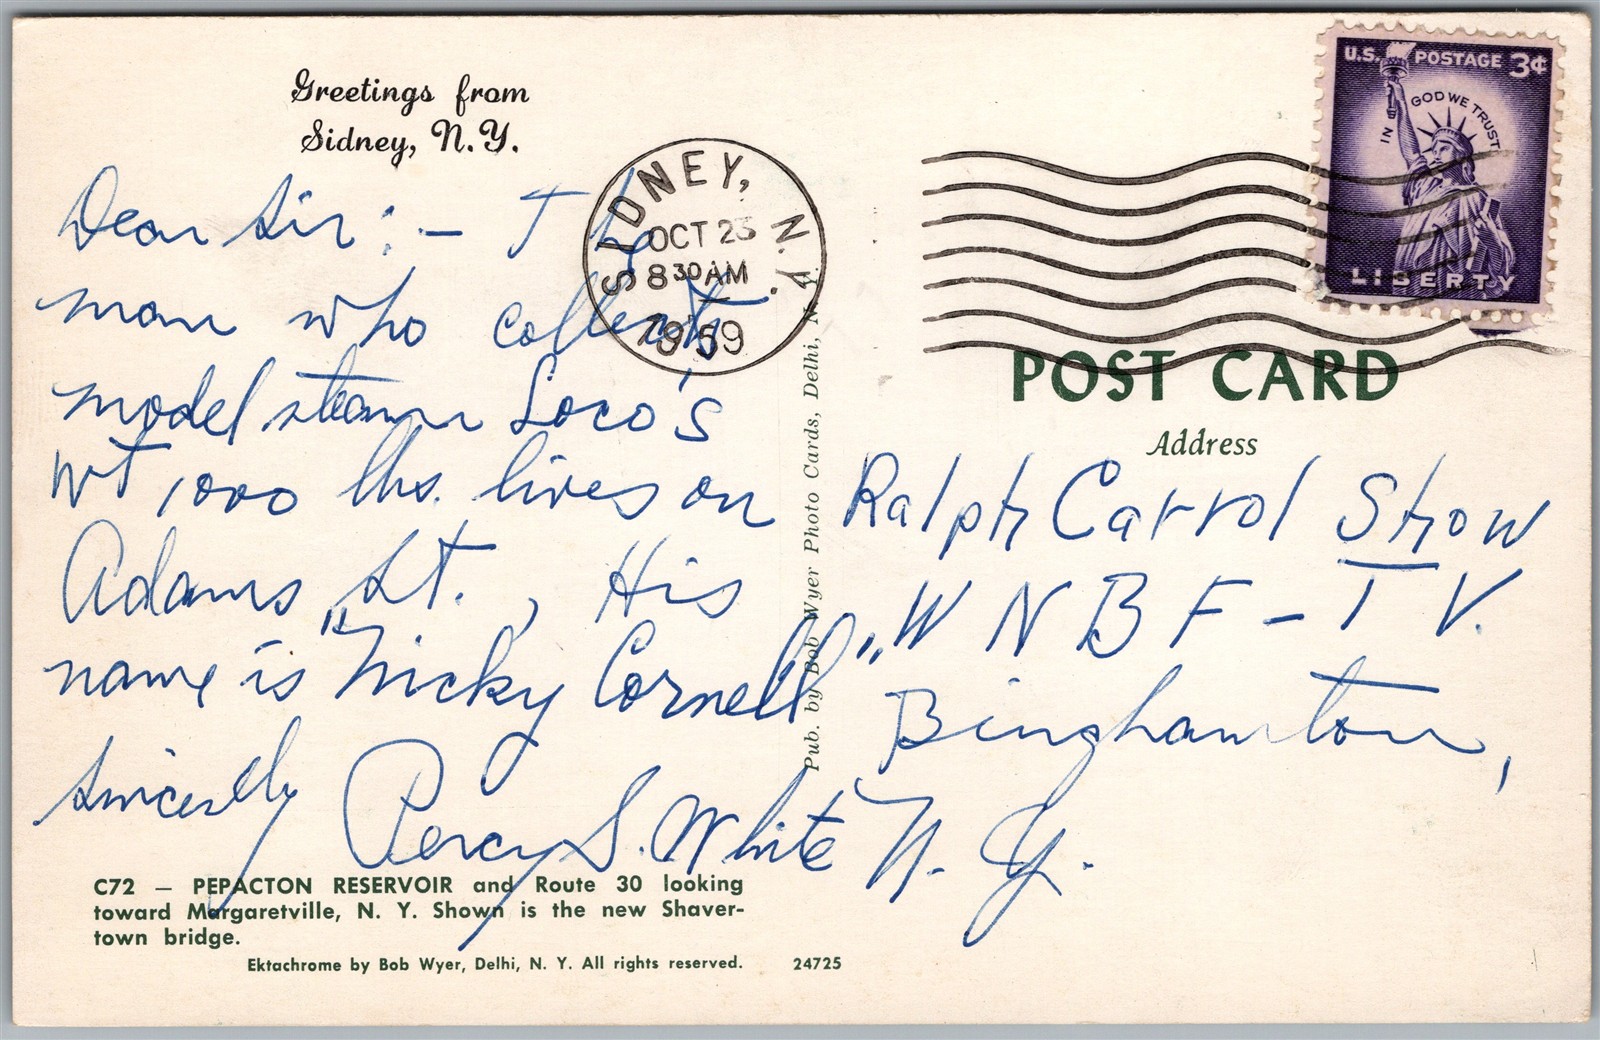 Greetings from
Sidney, N.Y.
Dear Sir:- The
man who collects
model steam Loco's
wt 1000 lbs. lives on
Adams St., His
name is "Nicky Cornell"
Sincerely Percy S. White
C72 — PEPACTON RESERVOIR and Route 30 looking
toward Margaretville, N. Y. Shown is the new Shaver-
town bridge.
Ektachrome by Bob Wyer, Delhi, N. Y. All rights reserved. 24725
Pub. by Bob Wyer Photo Cards, Delhi, N. Y.
SIDNEY, N.Y.
OCT 23
8 30 AM
1959
U.S. POSTAGE 3¢
IN GOD WE TRUST
LIBERTY
POST CARD
Address
Ralph Carrol Show
W N B F - T V.
Binghamton,
N. Y.